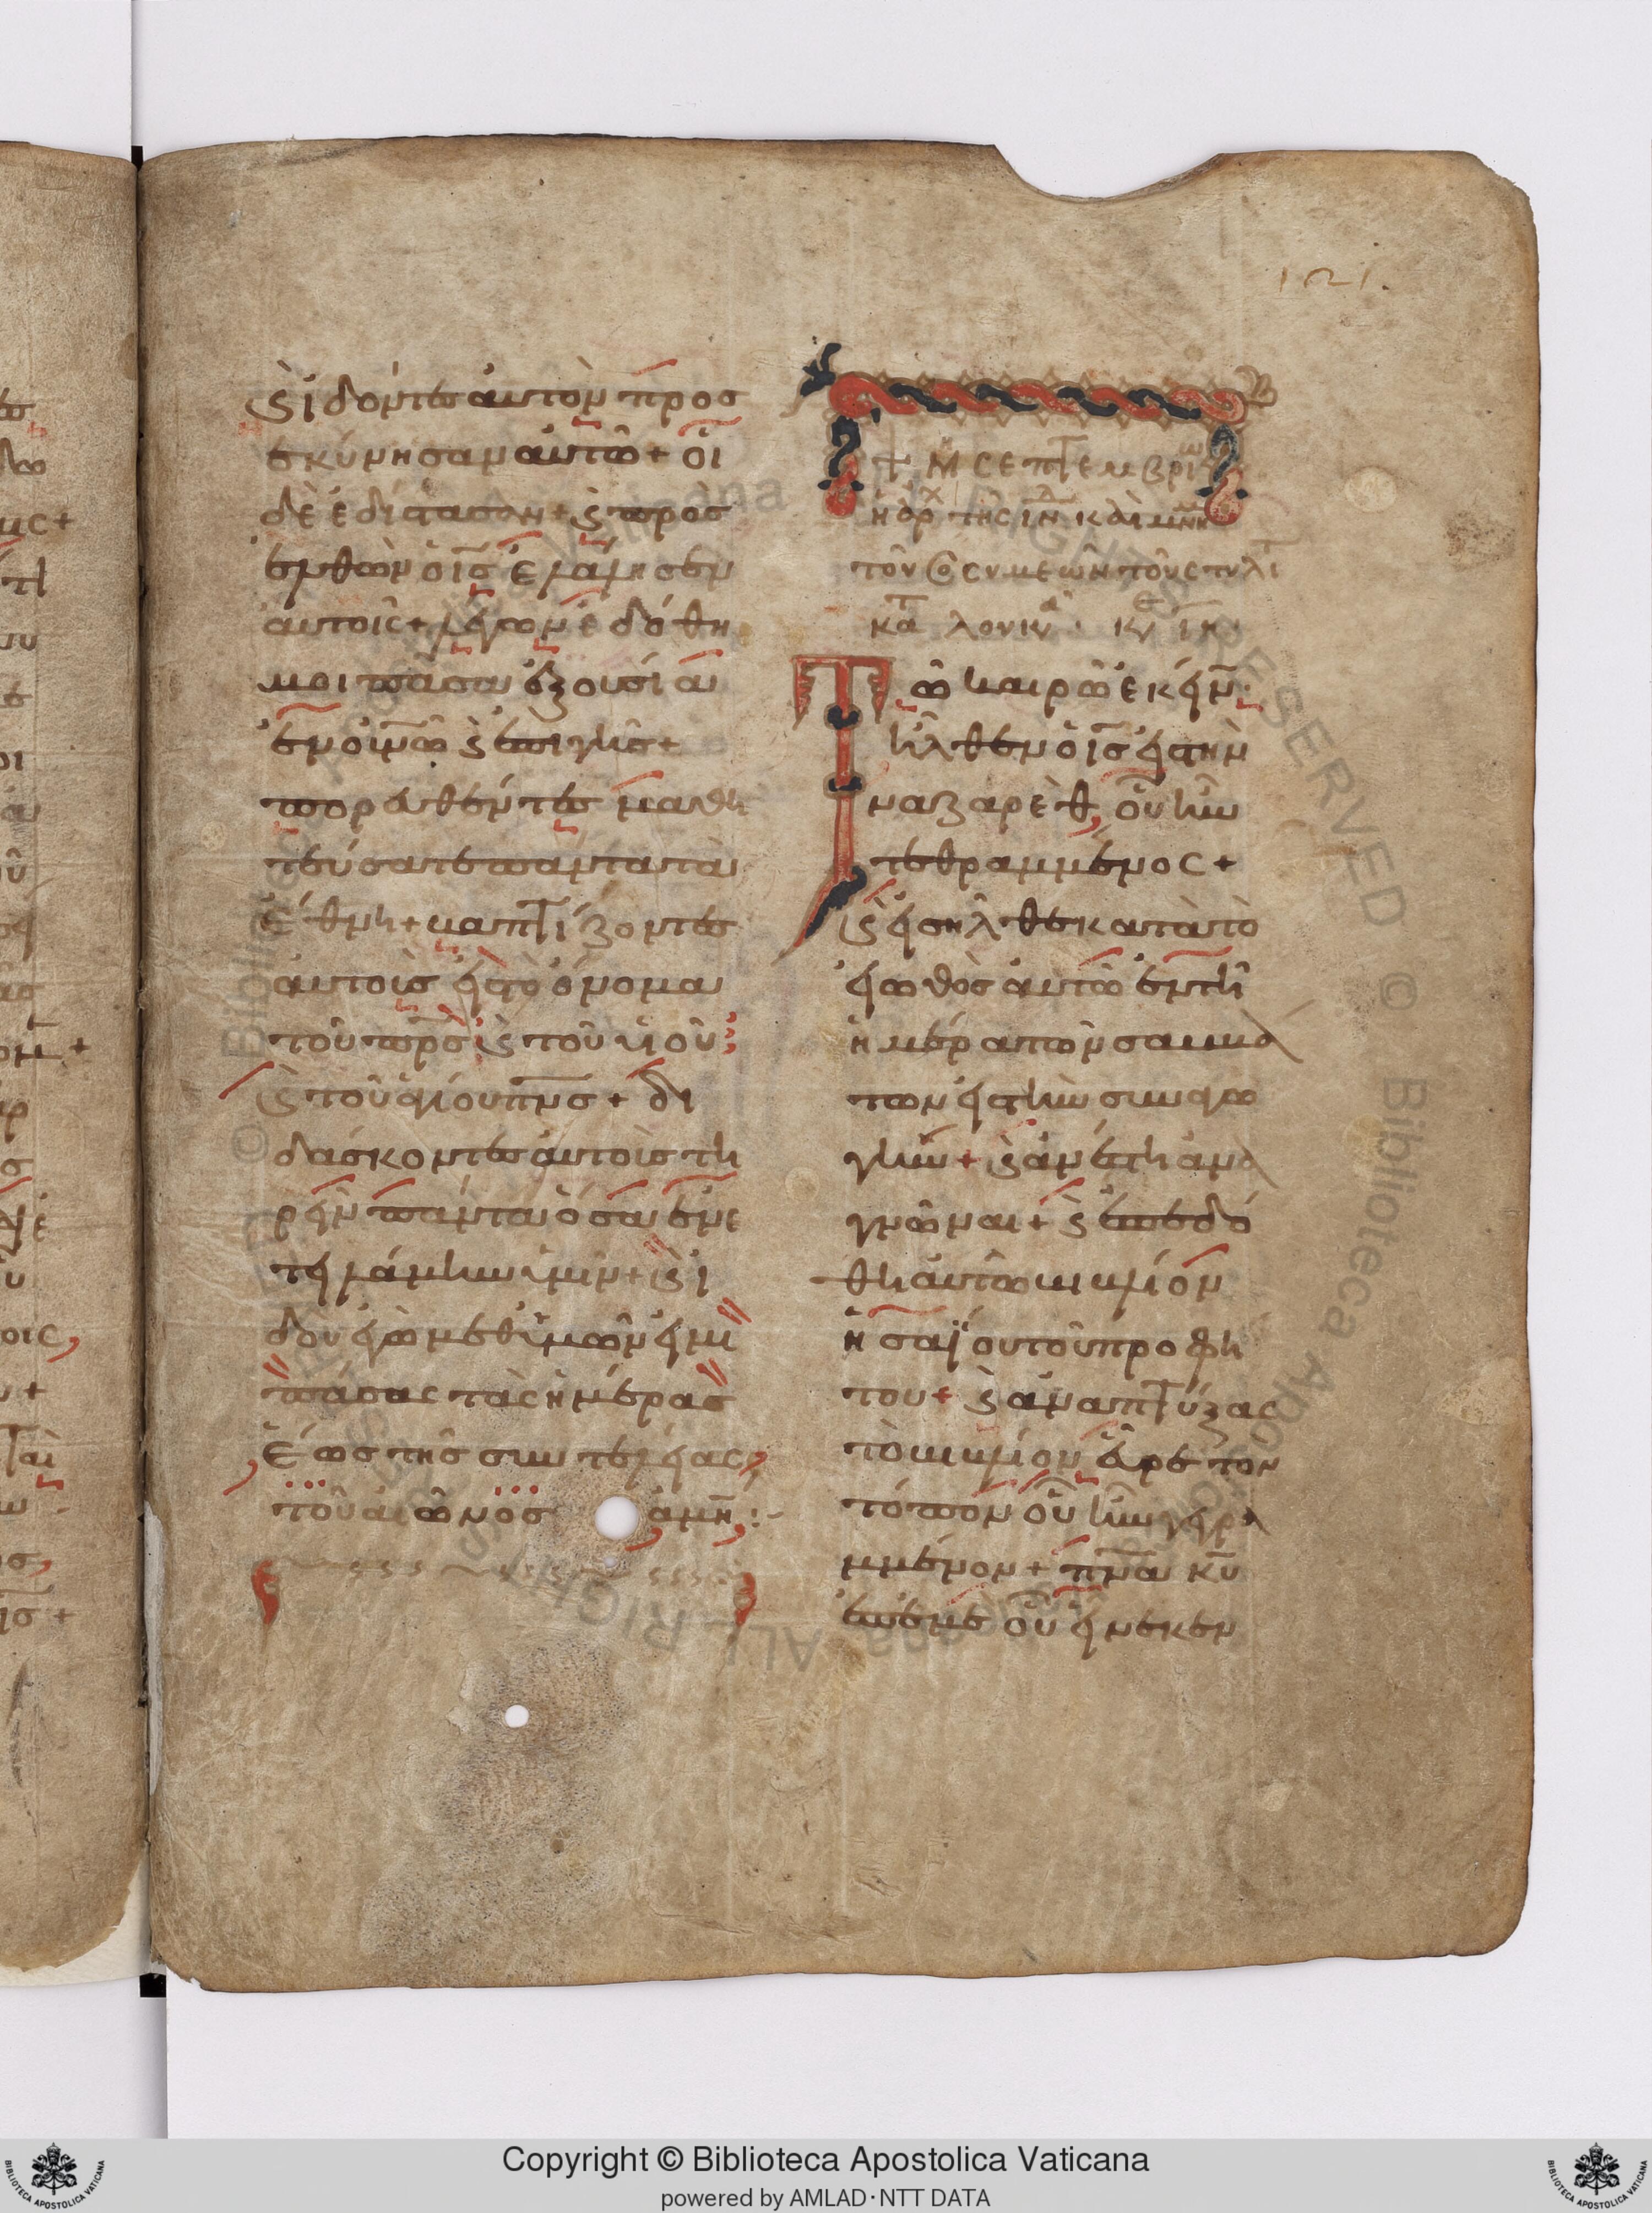 121.
ϗ ἰδόντες αὐτὸν προσ
εκύνησαν αὐτῶ + οἱ
δὲ ἐδίστασαν + ϗ προσ
ελθὼν ὁ ις ἐλάλησεν
αὐτοῖς + λέγων ἐδόθη
μοι πᾶσα ἐξουσία
ἐν οὐνω ϗ ἐπὶ γῆς +
πορευθέντες μαθη
τεύσατε πάντα τὰ
ἔθνη + βαπτίζοντες
αὐτοὺς εἰς τὸ ὄνομα
τοῦ πρς ϗ τοῦ υἱοῦ
ϗ τοῦ ἁγίου πνς + δι
δάσκοντες αὐτοὺς τη
ρεῖν πάντα ὅσα ἐνε
τειλάμην ὑμῖν + ϗ ἰ
δοὺ ἐγὼ μεθ ὑμῶν εἰμι
πάσας τὰς ἡμέρας
ἕως τῆς συντελείας
τοῦ αἰῶνος ἀμη :
+ Μη Σεπτεμβριω
ἡ ἀρχ τῆς ινδ καὶ μνη
τοῦ ὁσ Συμεὼν τοῦ στυλι
κατ λουκᾶ
Τῶ καιρῶ ἐκείν
ἦλθεν ὁ ις εἰς τὴν
ναζαρὲθ, οὗ ἦν
τεθραμμένος +
ϗ εἰσῆλθε κατὰ τὸ
εἰωθὸς αὐτῶ ἐν τῆ
ἡμέρα τῶν σαββά
των εἰς τὴν συναγω
γὴν + ϗ ἀνέστη ἀνα
γνῶναι + ϗ ἐπεδό
θη αὐτῶ βιβλίον
ἡσαΐου τοῦ προφή
του + ϗ ἀναπτύξας
τὸ βιβλίον εὗρε τὸν
τόπον οὗ ἦν γεγρα
μμένον + πνα κυ
ἐπ ἐμὲ οὗ εἵνεκεν
Copyright © Biblioteca Apostolica Vaticana
powered by AMLAD·NTT DATA